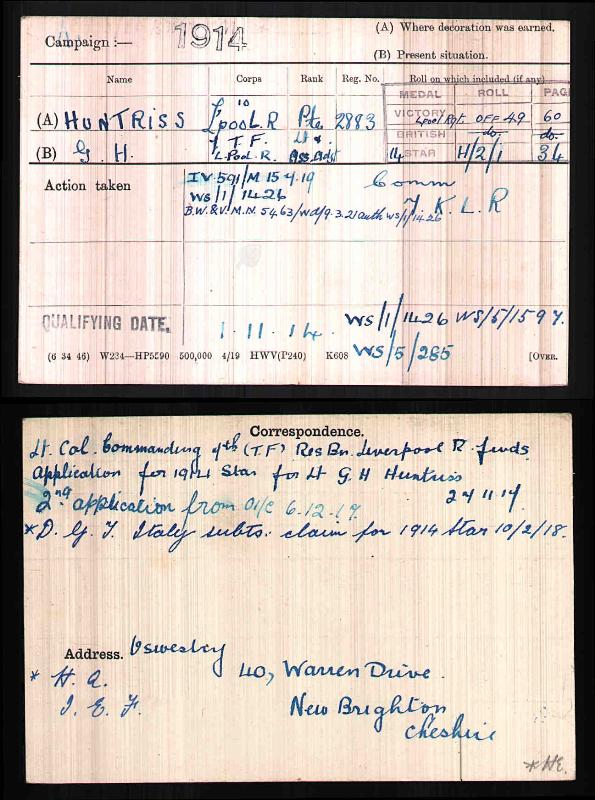 (A) Where decoration was earned.
Campaign :— 1914
(B) Present situation.
Name Corps Rank Reg. No. Roll on which included (if any)
MEDAL ROLL PAGE
(A) HUNTRISS L'pool. R Pte 2883 VICTORY Lpool Rgt. OFF 49 60
BRITISH do- do-
(B) G. H. T. F. Lt &
L. Pool. R. Ass. Adjt 14 STAR H/2/1 34
Action taken IV. 591/M 15 4.19 Comm
WS/1/1426 K. L. R
B.W.&V.M.N. 5463/ 9.3.21 auth WS/1/1426
QUALIFYING DATE. 1. 11. 14. WS/1/1426 WS/5/1597.
(6 34 46) W234—HP5590 500,000 4/19 HWV(P240) K608 WS/5/285 [OVER.
Correspondence.
Lt. Col. Commanding (T.F) Res Bn. Liverpool R. fwds
Application for 1914 Star for Lt G H Huntriss
24 11 17
2nd application from O i/c 6.12.17.
*D. G. T. Italy subts: claim for 1914 Star 10/2/18.
Address. Oswestry
* H. Q. 40, Warren Drive
I. E. F. New Brighton
Cheshire